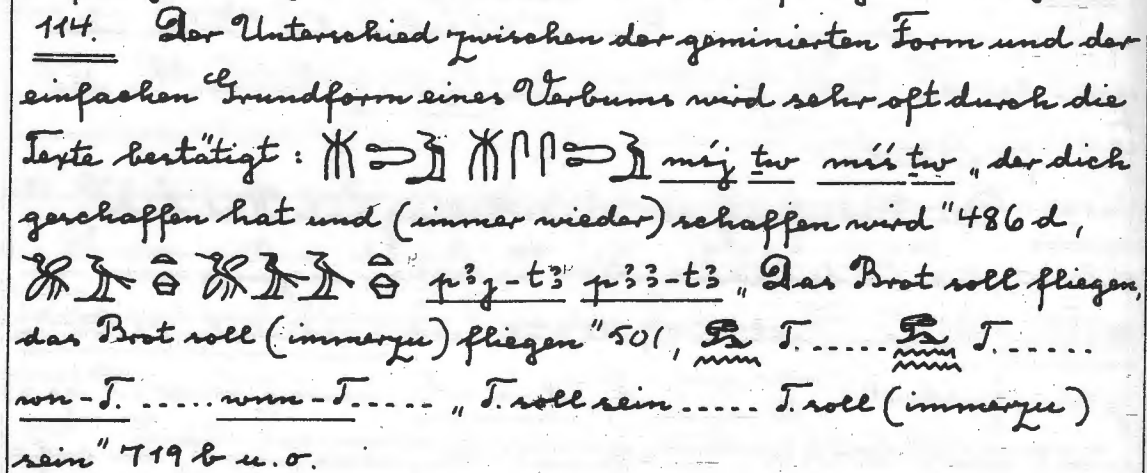 114. Der Unterschied zwischen der geminierten Form und der
einfachen Grundform eines Verbums wird sehr oft durch die
Texte bestätigt: 𓄟𓍿𓅱 𓄟𓋴𓋴𓍿𓅱 mśj ṯw mśś ṯw „der dich
geschaffen hat und (immer wieder) schaffen wird" 486 d,
𓅮𓄿𓏐 𓅮𓄿𓄿𓏐 pꜣj-tꜣ pꜣꜣ-tꜣ „Das Brot soll fliegen,
das Brot soll (immerzu) fliegen" 501, 𓃹𓈖 T. ..... 𓃹𓈖𓈖 T. ......
wn-T. ..... wnn-T. .... „T. soll sein ..... T. soll (immerzu)
sein" 719 b u. o.